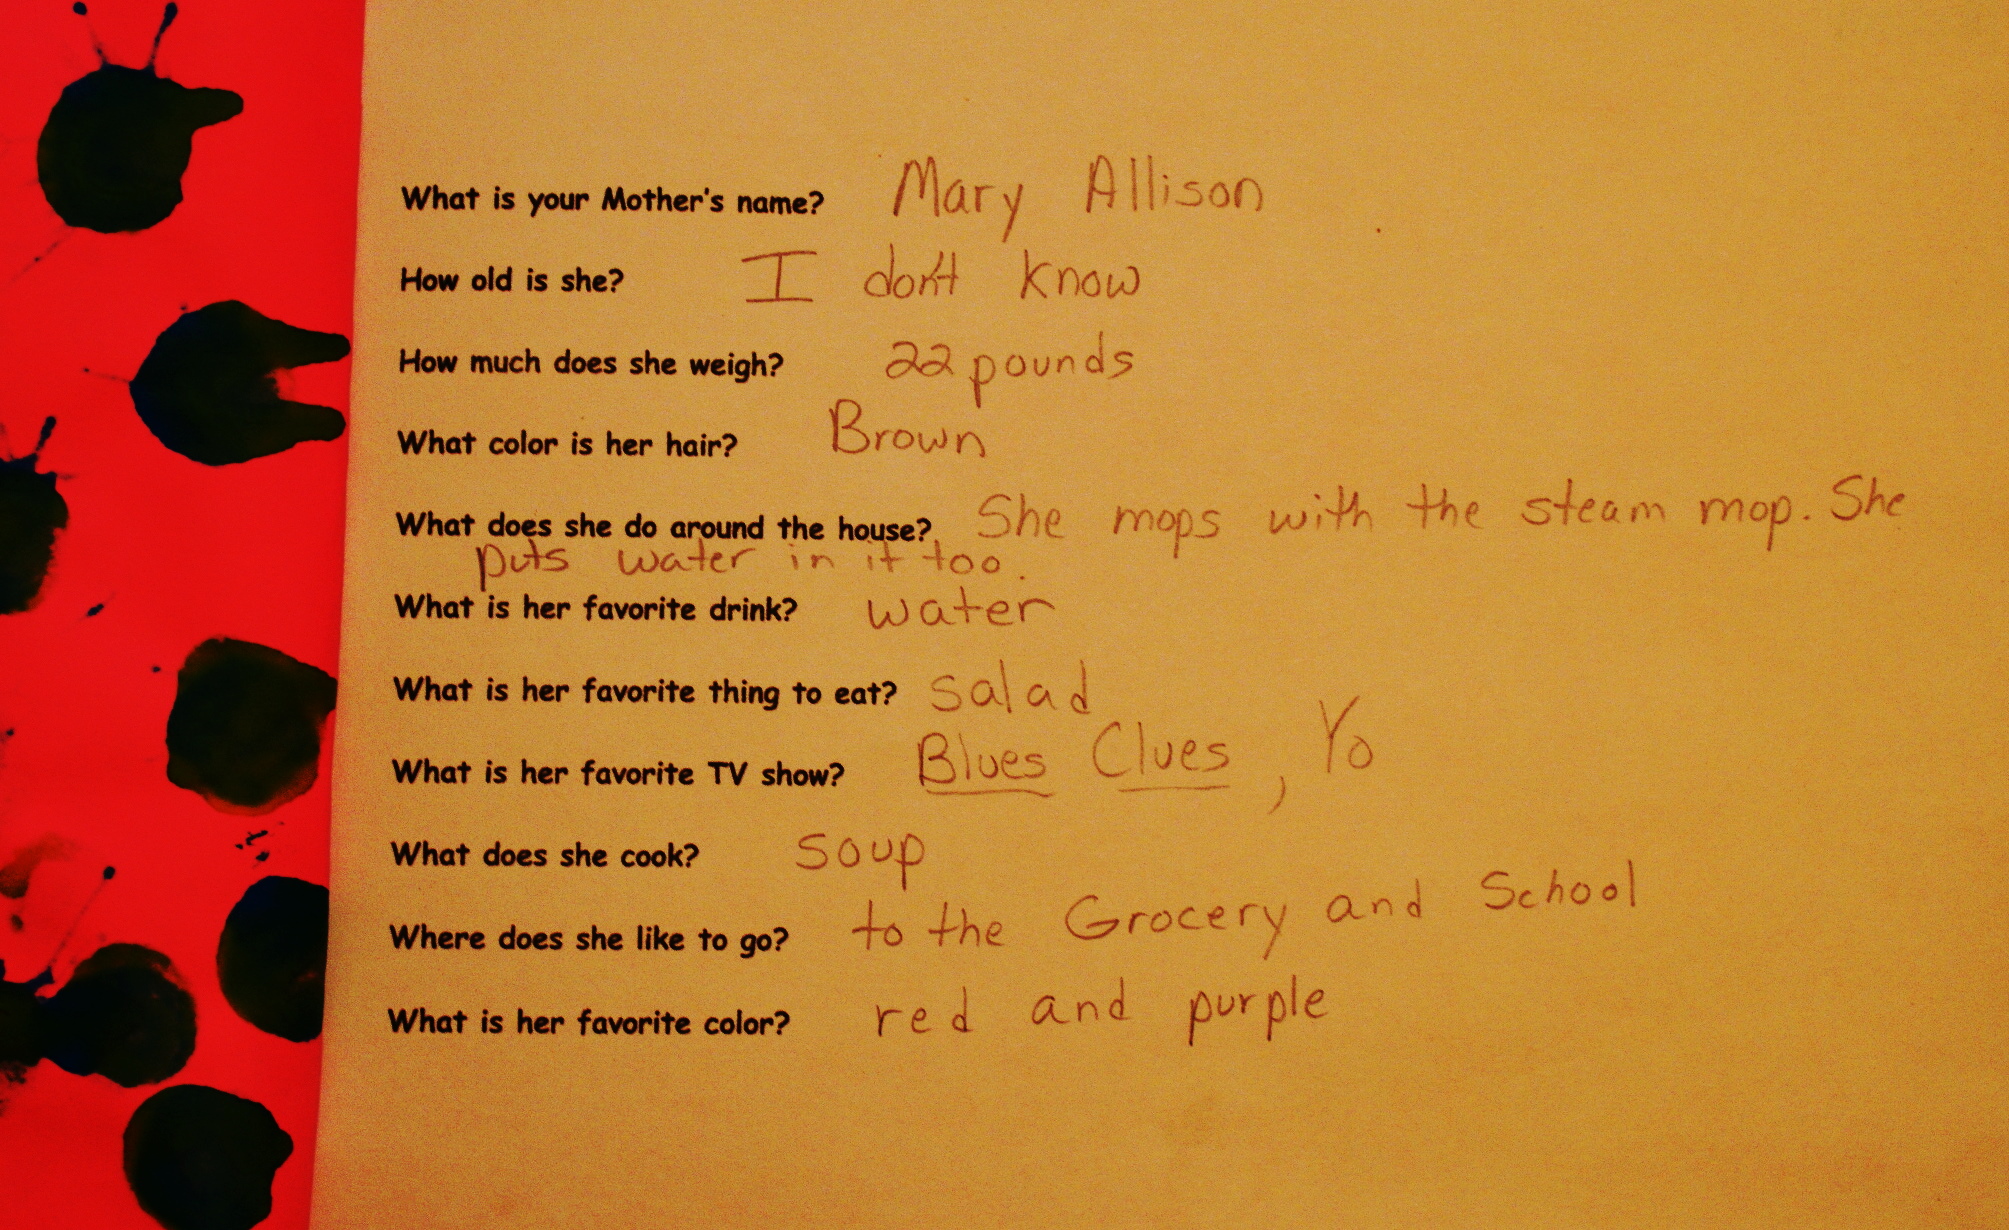 What is your Mother's name? Mary Allison
How old is she? I don't know
How much does she weigh? 22 pounds
What color is her hair? Brown
What does she do around the house? She mops with the steam mop. She
puts water in it too.
What is her favorite drink? water
What is her favorite thing to eat? salad
What is her favorite TV show? Blues Clues, Yo
What does she cook? soup
Where does she like to go? to the Grocery and School
What is her favorite color? red and purple